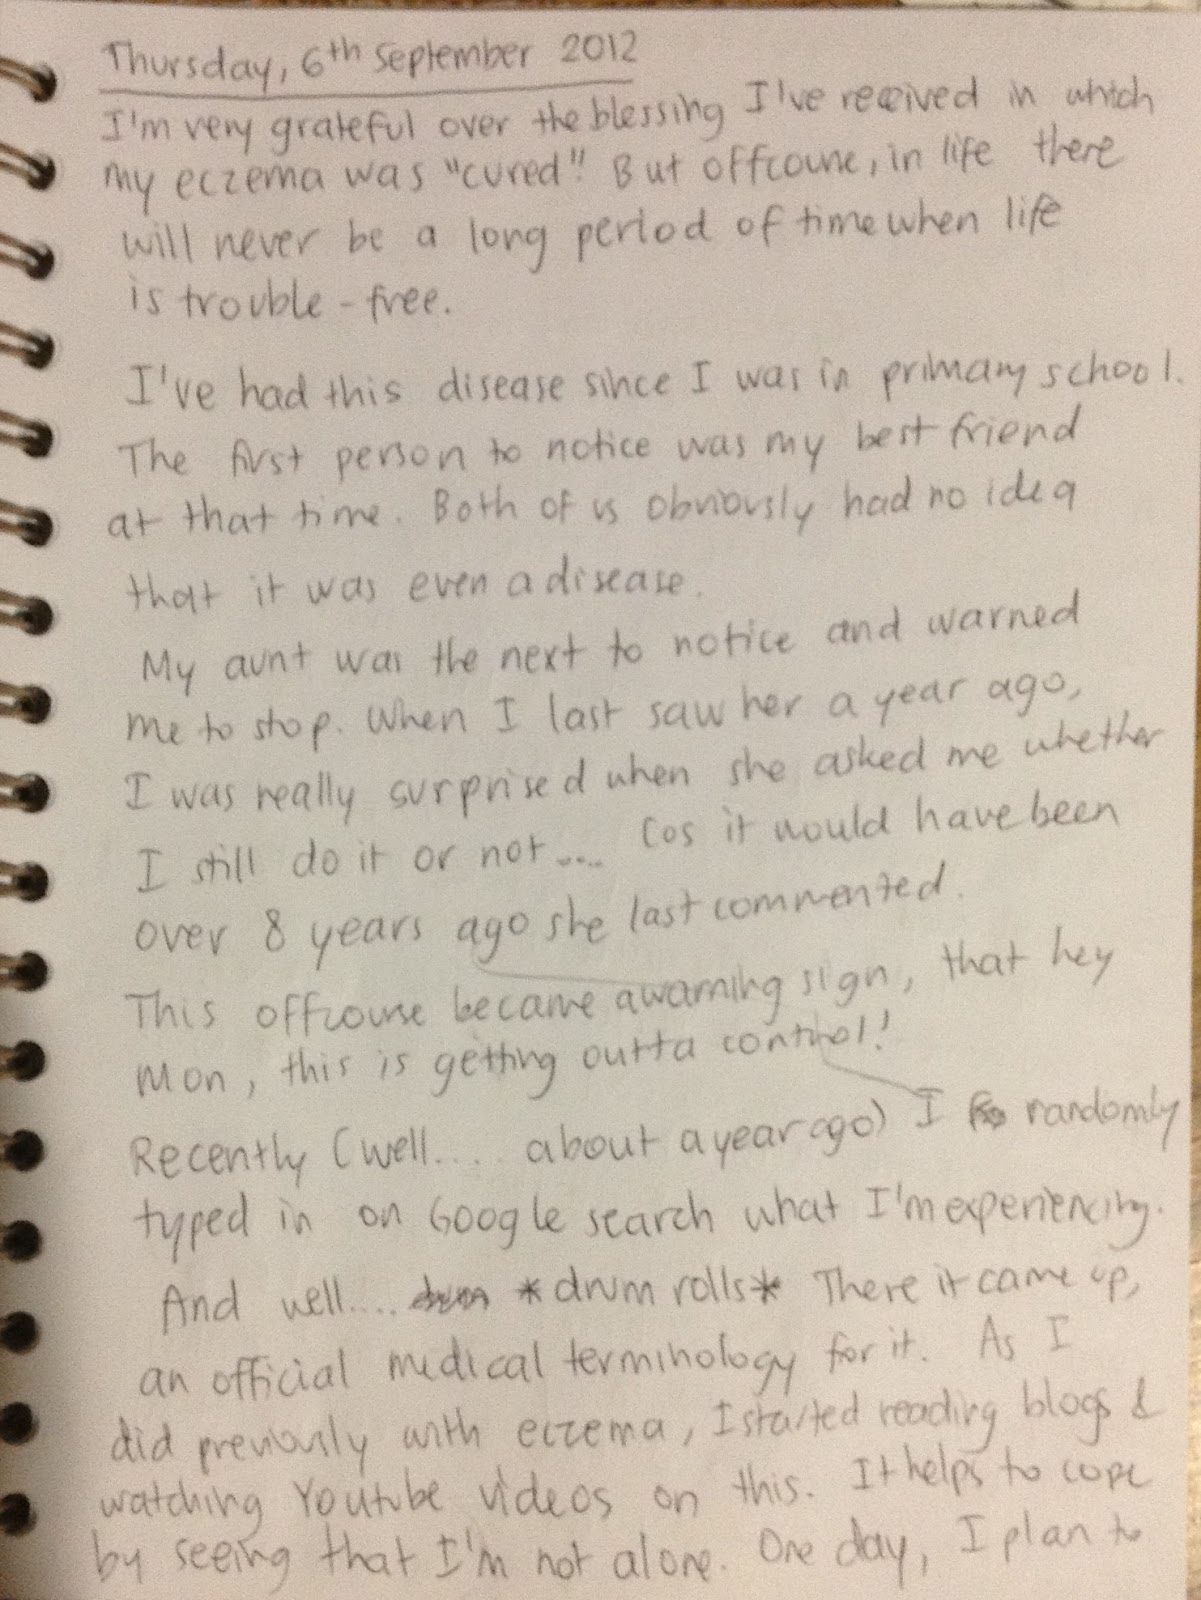 Thursday, 6th September 2012
I'm very grateful over the blessing I've received in which
my eczema was "cured"! But offcourse, in life there
will never be a long period of time when life
is trouble-free.
I've had this disease since I was in primary school.
The first person to notice was my best friend
at that time. Both of us obviously had no idea
that it was even a disease.
My aunt was the next to notice and warned
me to stop. When I last saw her a year ago,
I was really surprised when she asked me whether
I still do it or not.... Cos it would have been
over 8 years ago she last commented.
This offcourse became a warning sign, that hey
Mon, this is getting outta control!
Recently (well.... about a year ago) I randomly
typed in on Google search what I'm experiencing.
And well.... drum *drum rolls* There it came up,
an official medical terminology for it. As I
did previously with eczema, I started reading blogs &
watching Youtube videos on this. It helps to cope
by seeing that I'm not alone. One day, I plan to